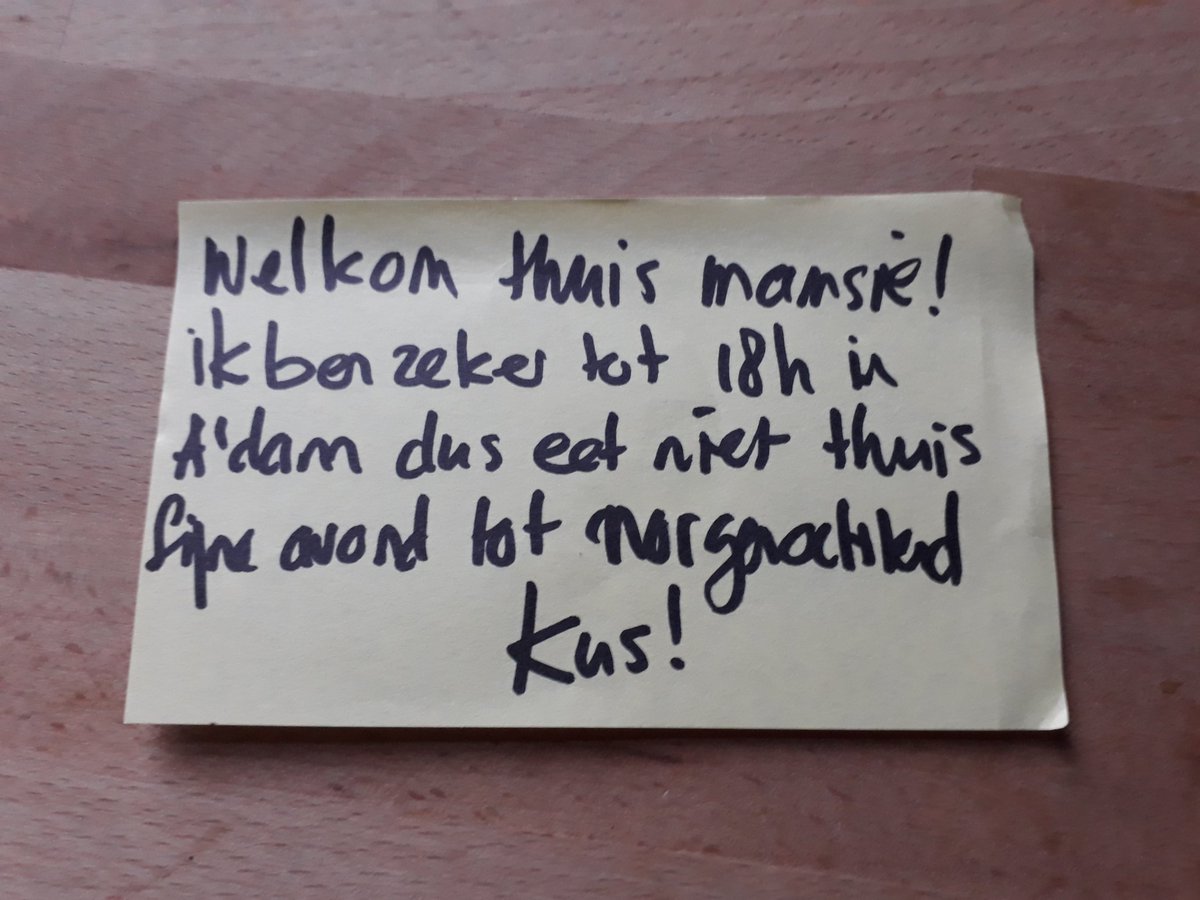 Welkom thuis mamsie!
ik ben zeker tot 18h in
A'dam dus eet niet thuis
fijne avond tot morgenochtend
Kus!